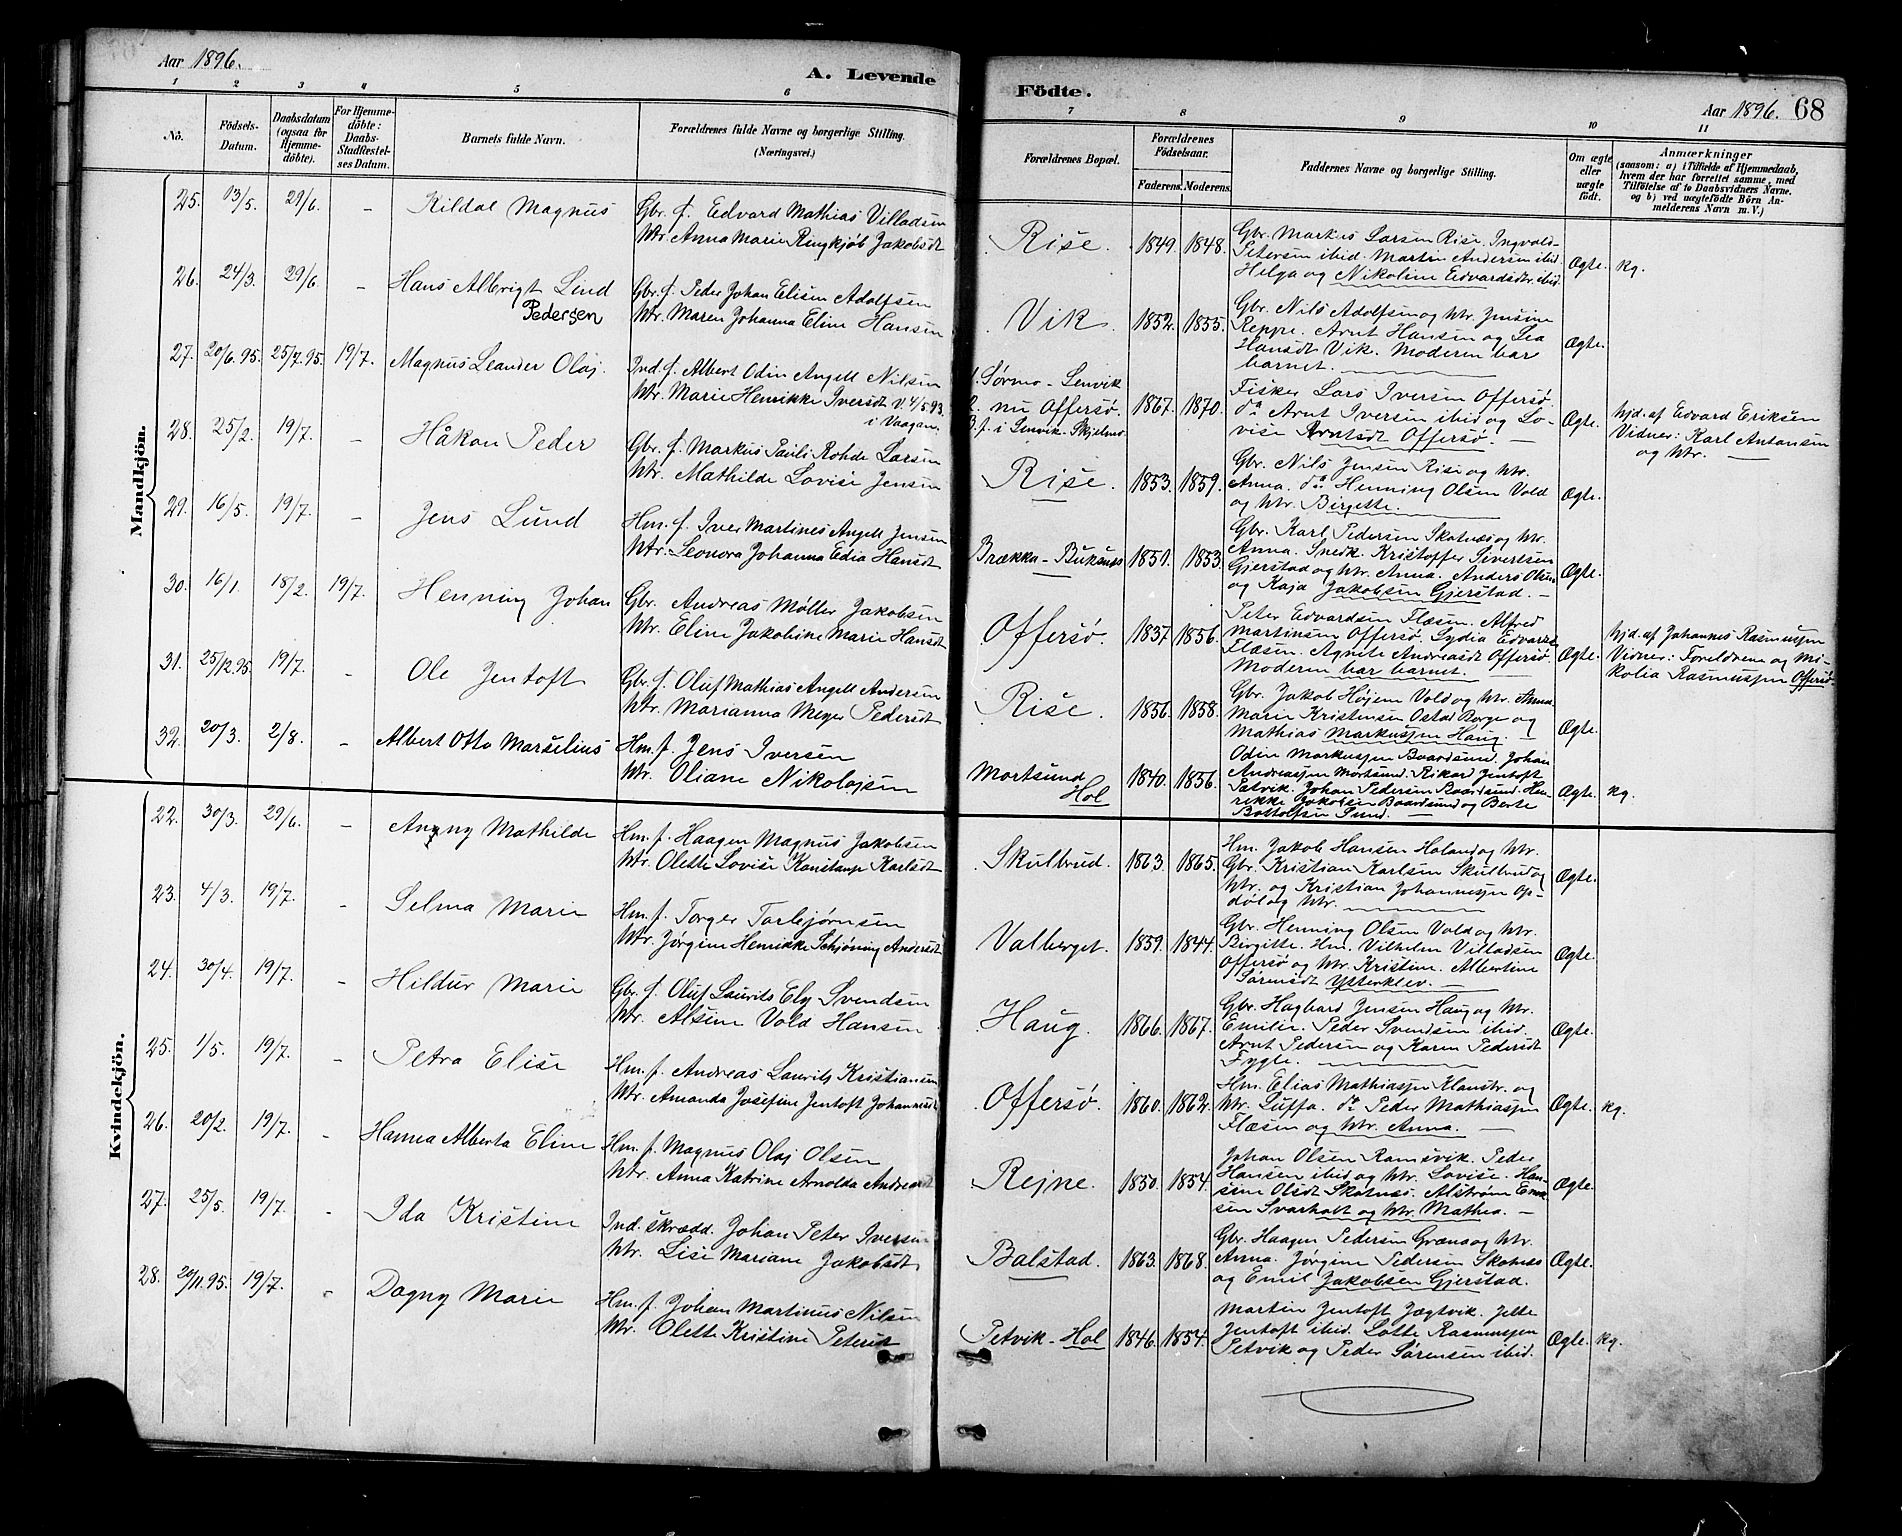 Aar 1896.
A. Levende
Födte.
Aar 1896. 68
1 2 3 4 5 6 7 8 9 10 11
No.
Födsels-Datum.
Daabsdatum (ogsaa for Hjemme-döbte).
For Hjemme-döbte: Daabs-Stadfæstel-ses Datum.
Barnets fulde Navn.
Forældrenes fulde Navne og borgerlige Stilling.
(Næringsvei.)
Forældrenes Bopæl.
Forældrenes Födselsaar.
Faderens. Moderens.
Faddernes Navne og borgerlige Stilling.
Om ægte eller uægte født.
Anmærkninger
(saasom: a) i Tilfælde af Hjemmedaab,
hvem der har forrettet samme, med
Tilföielse af to Daabsvidners Navne.
og b) ved uægtefödte Börn An-
melderens Navn m. V.)
Mandkjön.
25. 13/5. 29/6. - Kildal Magnus
Gbr. f. Edvard Mathias Villadsen
Htr. Anna Marie Ringkjøb Jakobsdt
Rise. 1849. 1848.
Gbr. Markus Larsen Rise. Ingvald
Petersen ibid. Martin Andersen ibid.
Helga og Nikoline Edvardsdtr. ibid.
Ægte. kg.
26. 24/3. 29/6. - Hans Albrigt Lind
Pedersen
Gbr. f. Peder Johan Elisen Adolfsen
Htr. Maren Johanna Eline Hansen
Vik. 1852. 1855.
Gbr. Nils Adolfsen og Htr. Jensine
Reppe. Arnt Hansen og Lea
Hansdt Vik. Moderen bar
barnet.
Ægte.
27. 20/6.95. 25/7.95. 19/7. Magnus Leander Olaj.
Ind. f. Albert Odin Angell Nilsen
Htr. Marie Henrikke Iversdt V. 4/5 93.
i Vaagan.
Sørmo - Lenvik
nu Offersø.
B. f. i Lenvik - Skjelmo
1867. 1870.
Fisker Lars Iversen Offersø.
do Arnt Iversen ibid og Lo-
vise Arntsdt Offersø. -
Ægte.
hjd. af Edvard Eriksen
Vidner: Karl Antonsen
og Htr.
28. 25/2. 19/7. - Håkon Peder
Gbr. f. Markus Pauli Rohde Larsen
Htr. Mathilde Lovise Jensen
Rise. 1853. 1859.
Gbr. Nils Jensen Rise og Htr.
Anna. do Henning Olsen Vold
og Htr. Birgitte.
Ægte.
29. 16/5. 19/7. - Jens Lund
Hm. f. Iver Martines Angell Jensen
Htr. Leonora Johanna Edia Hansdt
Brækka - Buksnes 1851. 1853.
Gbr. Karl Pedersen Skotnæs og Htr.
Anna. Snedk. Kristoffer Sivertsen
Gjerstad og Htr. Anna. Anders Olsen
og Kaja Jakobsen Gjerstad. -
Ægte.
30. 16/1. 18/2. 19/7. Henning Johan
Gbr. Andreas Møller Jakobsen
Htr. Eline Jakobine Marie Hansdt
Offersø. 1837. 1856.
Peter Edvardsen Flæsen. Alfred
Martinsen Offersø. Lydia Edvardsd
Flæsen. Agnete Andreasdt Offersø.
Moderen bar barnet.
Ægte.
hjd. af Johannes Rasmussen
Vidner: Foreldrene og Ni-
kolia Rasmussen Offersø.
31. 25/12.95. 19/7. - Ole Jentoft
Gbr. f. Oluf Mathias Angell Andersen
Htr. Marianna Meyer Pedersdt
Rise. 1856. 1858.
Gbr. Jakob Højem Vold og Htr. Anna
Marie Kristensen Ostad Borge og
Mathias Markussen Haug. -
Ægte.
32. 20/3. 2/8. - Albert Otto Marselius
Hm. f. Jens Iversen
Htr. Oliane Nikolajsen
Mortsund
Hol
1840. 1856.
Odin Markussen Baardsund. Johan
Andreassen Mortsund. Rikard Jentoft
Petvik. Johan Pedersen Baardsund. Hen-
rikke Jakobsen Baardsund og Berte
Bottolfsen Sund. -
Ægte. kg.
Kvindekjön.
22. 30/3. 29/6. - Angny Mathilde
Hm. f. Haagen Magnus Jakobsen
Htr. Olette Lovise Konstanse Karlsdt
Skulbrud. 1863. 1865.
Hm. Jakob Hansen Holand og Htr.
Gbr. Kristian Karlsen Skulbrud og
Htr. og Kristian Johannessen Op-
døl og Htr.
Ægte.
23. 4/3. 19/7. - Selma Marie
Hm. f. Torger Torbjørnsen
Htr. Jørgine Henrikke Schjøning Andersdt
Valberget. 1859. 1844.
Gbr. Henning Olsen Vold og Htr.
Birgitte. Hm. Vilhelm Villadsen
Offersø og Htr. Kristine. Albertine
Sørensdt Ytterklev. -
Ægte.
24. 30/4. 19/7. - Hildur Marie
Gbr. f. Oluf Laurits Ely Svendsen
Htr. Alsine Vold Hansen
Haug. 1866. 1867.
Gbr. Hagbard Jensen Haug og Htr.
Emilie. Peder Svendsen ibid.
Arnt Pedersen og Karen Pedersdt
Fygle.
Ægte.
25. 1/5. 19/7. - Petra Elise
Hm. f. Andreas Laurits Kristiansen
Htr. Amanda Josefine Jentoft Johannesdt
Offersø. 1860. 1862.
Hm. Elias Mathiassen Klanstr. og
Htr. Luffa. do Peder Mathiassen
Flæsen og Htr. Anna. -
Ægte. kg.
26. 20/2. 19/7. - Hanna Alberta Eline
Hm. f. Magnus Olaj Olsen
Htr. Anna Katrine Arnolda Andreasdt
Rejne. 1850. 1854.
Johan Olsen Ramsvik. Peder
Hansen ibid og Htr. Lovise. Han-
sine Olsdt Skotnæs. Alstrøm
Svarholt og Htr. Mathea. -
Ægte.
27. 25/5. 19/7. - Ida Kristine
Ind. skrædd. Johan Peter Iversen
Htr. Lise Mariane Jakobsdt
Balstad. 1863. 1868.
Gbr. Haagen Pedersen Græna og Htr.
Anna. Jørgine Pedersen Skotnæs
og Emil Jakobsen Gjerstad.
Ægte.
28. 29/11.95. 19/7. - Dagny Marie
Hm. f. Johan Martinus Nilsen
Htr. Olette Kristine Petersdt
Petvik - Hol 1846. 1854.
Martin Jentoft Jægtvik. Jette
Jentoft ibid. Lotte Rasmussen
Petvik og Peder Sørensen ibid.
Ægte. kg.